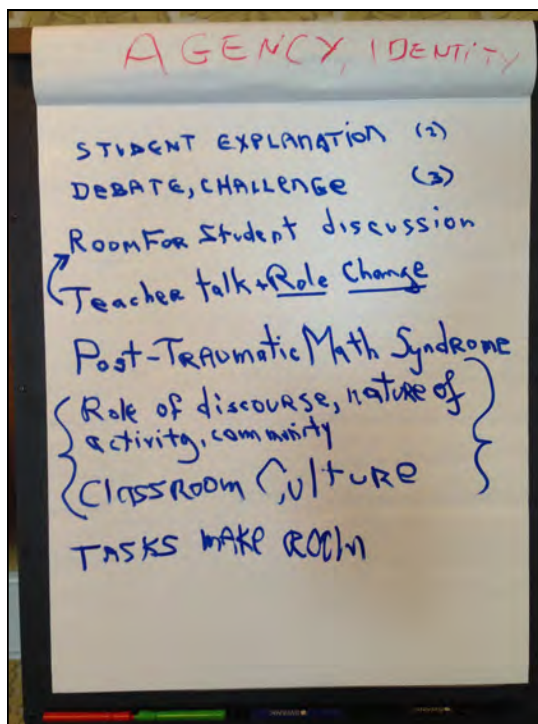 AGENCY, IDENTITY
STUDENT EXPLANATION (2)
DEBATE, CHALLENGE (3)
Room For Student discussion
Teacher talk + Role Change
Post-Traumatic Math Syndrome
Role of discourse, nature of
activity, community
Classroom Culture
TASKS MAKE ROOM